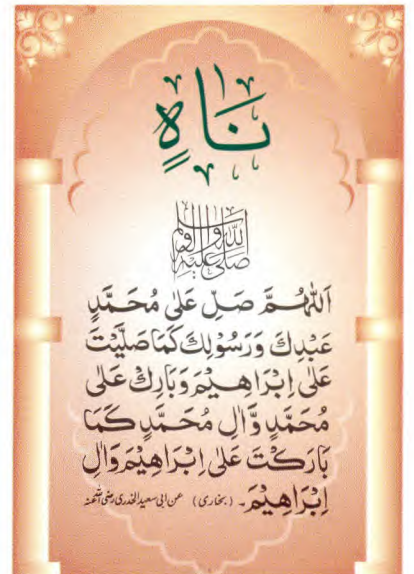 نَاهٍ
صَلَّى اللّٰهُ عَلَيْهِ وَاٰلِهٖ وَسَلَّمَ
اَللّٰهُمَّ صَلِّ عَلٰى مُحَمَّدٍ
عَبْدِكَ وَرَسُوْلِكَ كَمَا صَلَّيْتَ
عَلٰى اِبْرَاهِيْمَ وَبَارِكْ عَلٰى
مُحَمَّدٍ وَّاٰلِ مُحَمَّدٍ كَمَا
بَارَكْتَ عَلٰى اِبْرَاهِيْمَ وَاٰلِ
اِبْرَاهِيْمَ۔ (بخاری) عن ابی سعید الخدری رضی اللہ عنہ